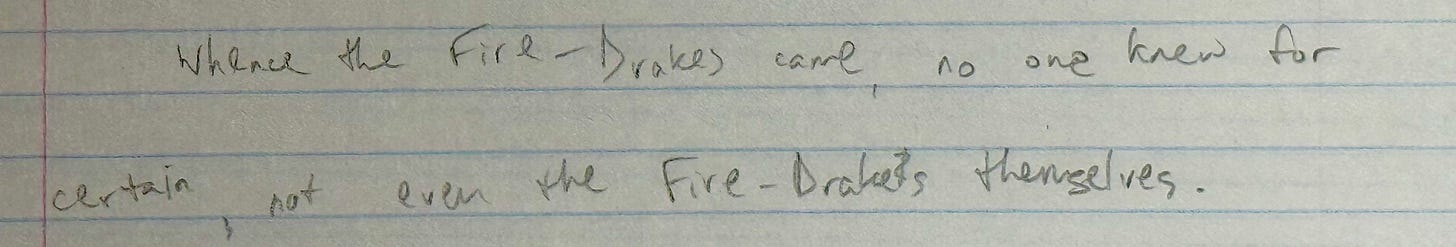 Whence the Fire-Drakes came, no one knew for
certain, not even the Fire-Drakes themselves.